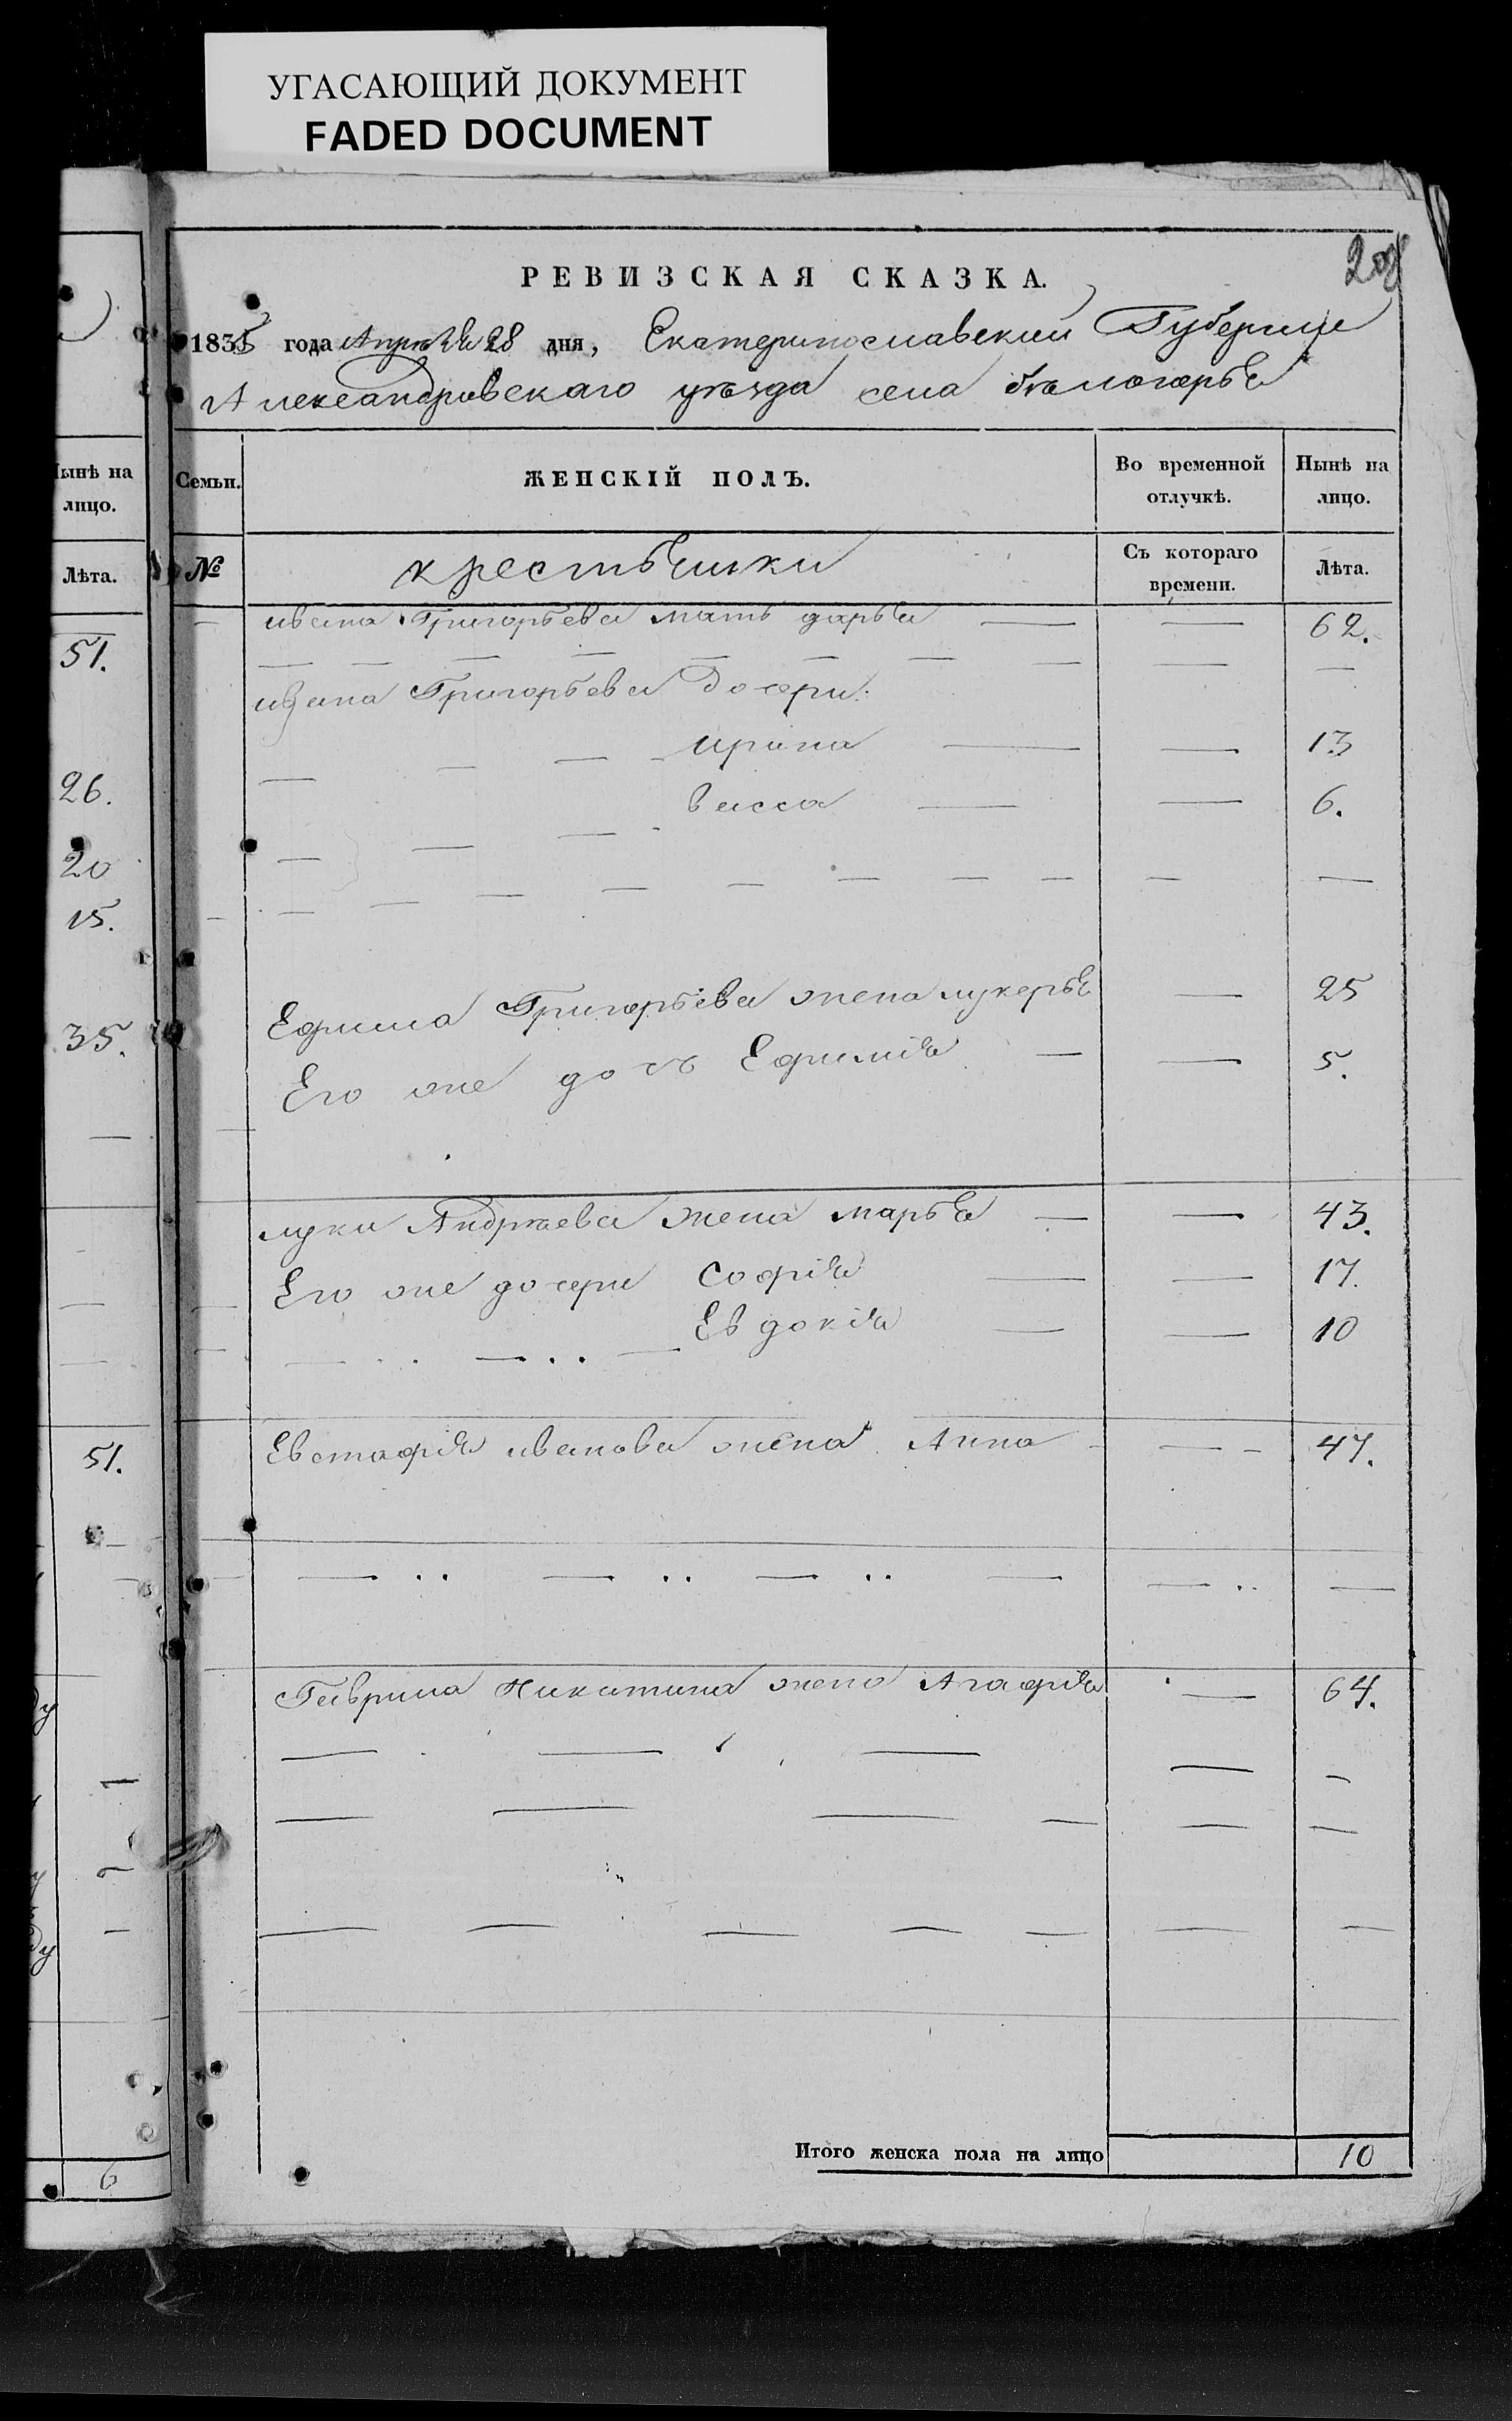 УГАСАЮЩИЙ ДОКУМЕНТ
FADED DOCUMENT
РЕВИЗСКАЯ СКАЗКА.
1835 года Апреля 28 дня, Екатеринославский Губернии
Александровскаго уѣзда села бѣлогорья
Нынѣ на лицо.
Лѣта.
51.
26.
20
15.
35.
51.
6
Семьи. ЖЕНСКІЙ ПОЛЪ. Во временной отлучкѣ. Нынѣ на лицо.
№ крестьянки Съ котораго времени. Лѣта.
ивана Григорьева мать дарья — — 62.
ивана Григорьева дочери:
ирина — — 13
васса — — 6.
Ефима Григорьева жена лукерья — 25
Его же дочь Ефимія — — 5.
луки Андреева жена марья — — 43.
Его же дочери софія — — 17.
Евдокія — — 10
Евстафія иванова жена Анна — 47.
Гаврила Никитина жена Агафія — 64.
Итого женска пола на лицо 10